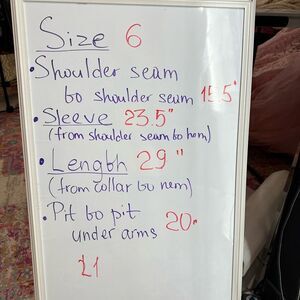 Size 6
• Shoulder seam
to shoulder seam 15.5"
• Sleeve 23.5"
(from shoulder seam to hem)
• Length 29"
(from collar to hem)
• Pit to pit 20"
under arms
21